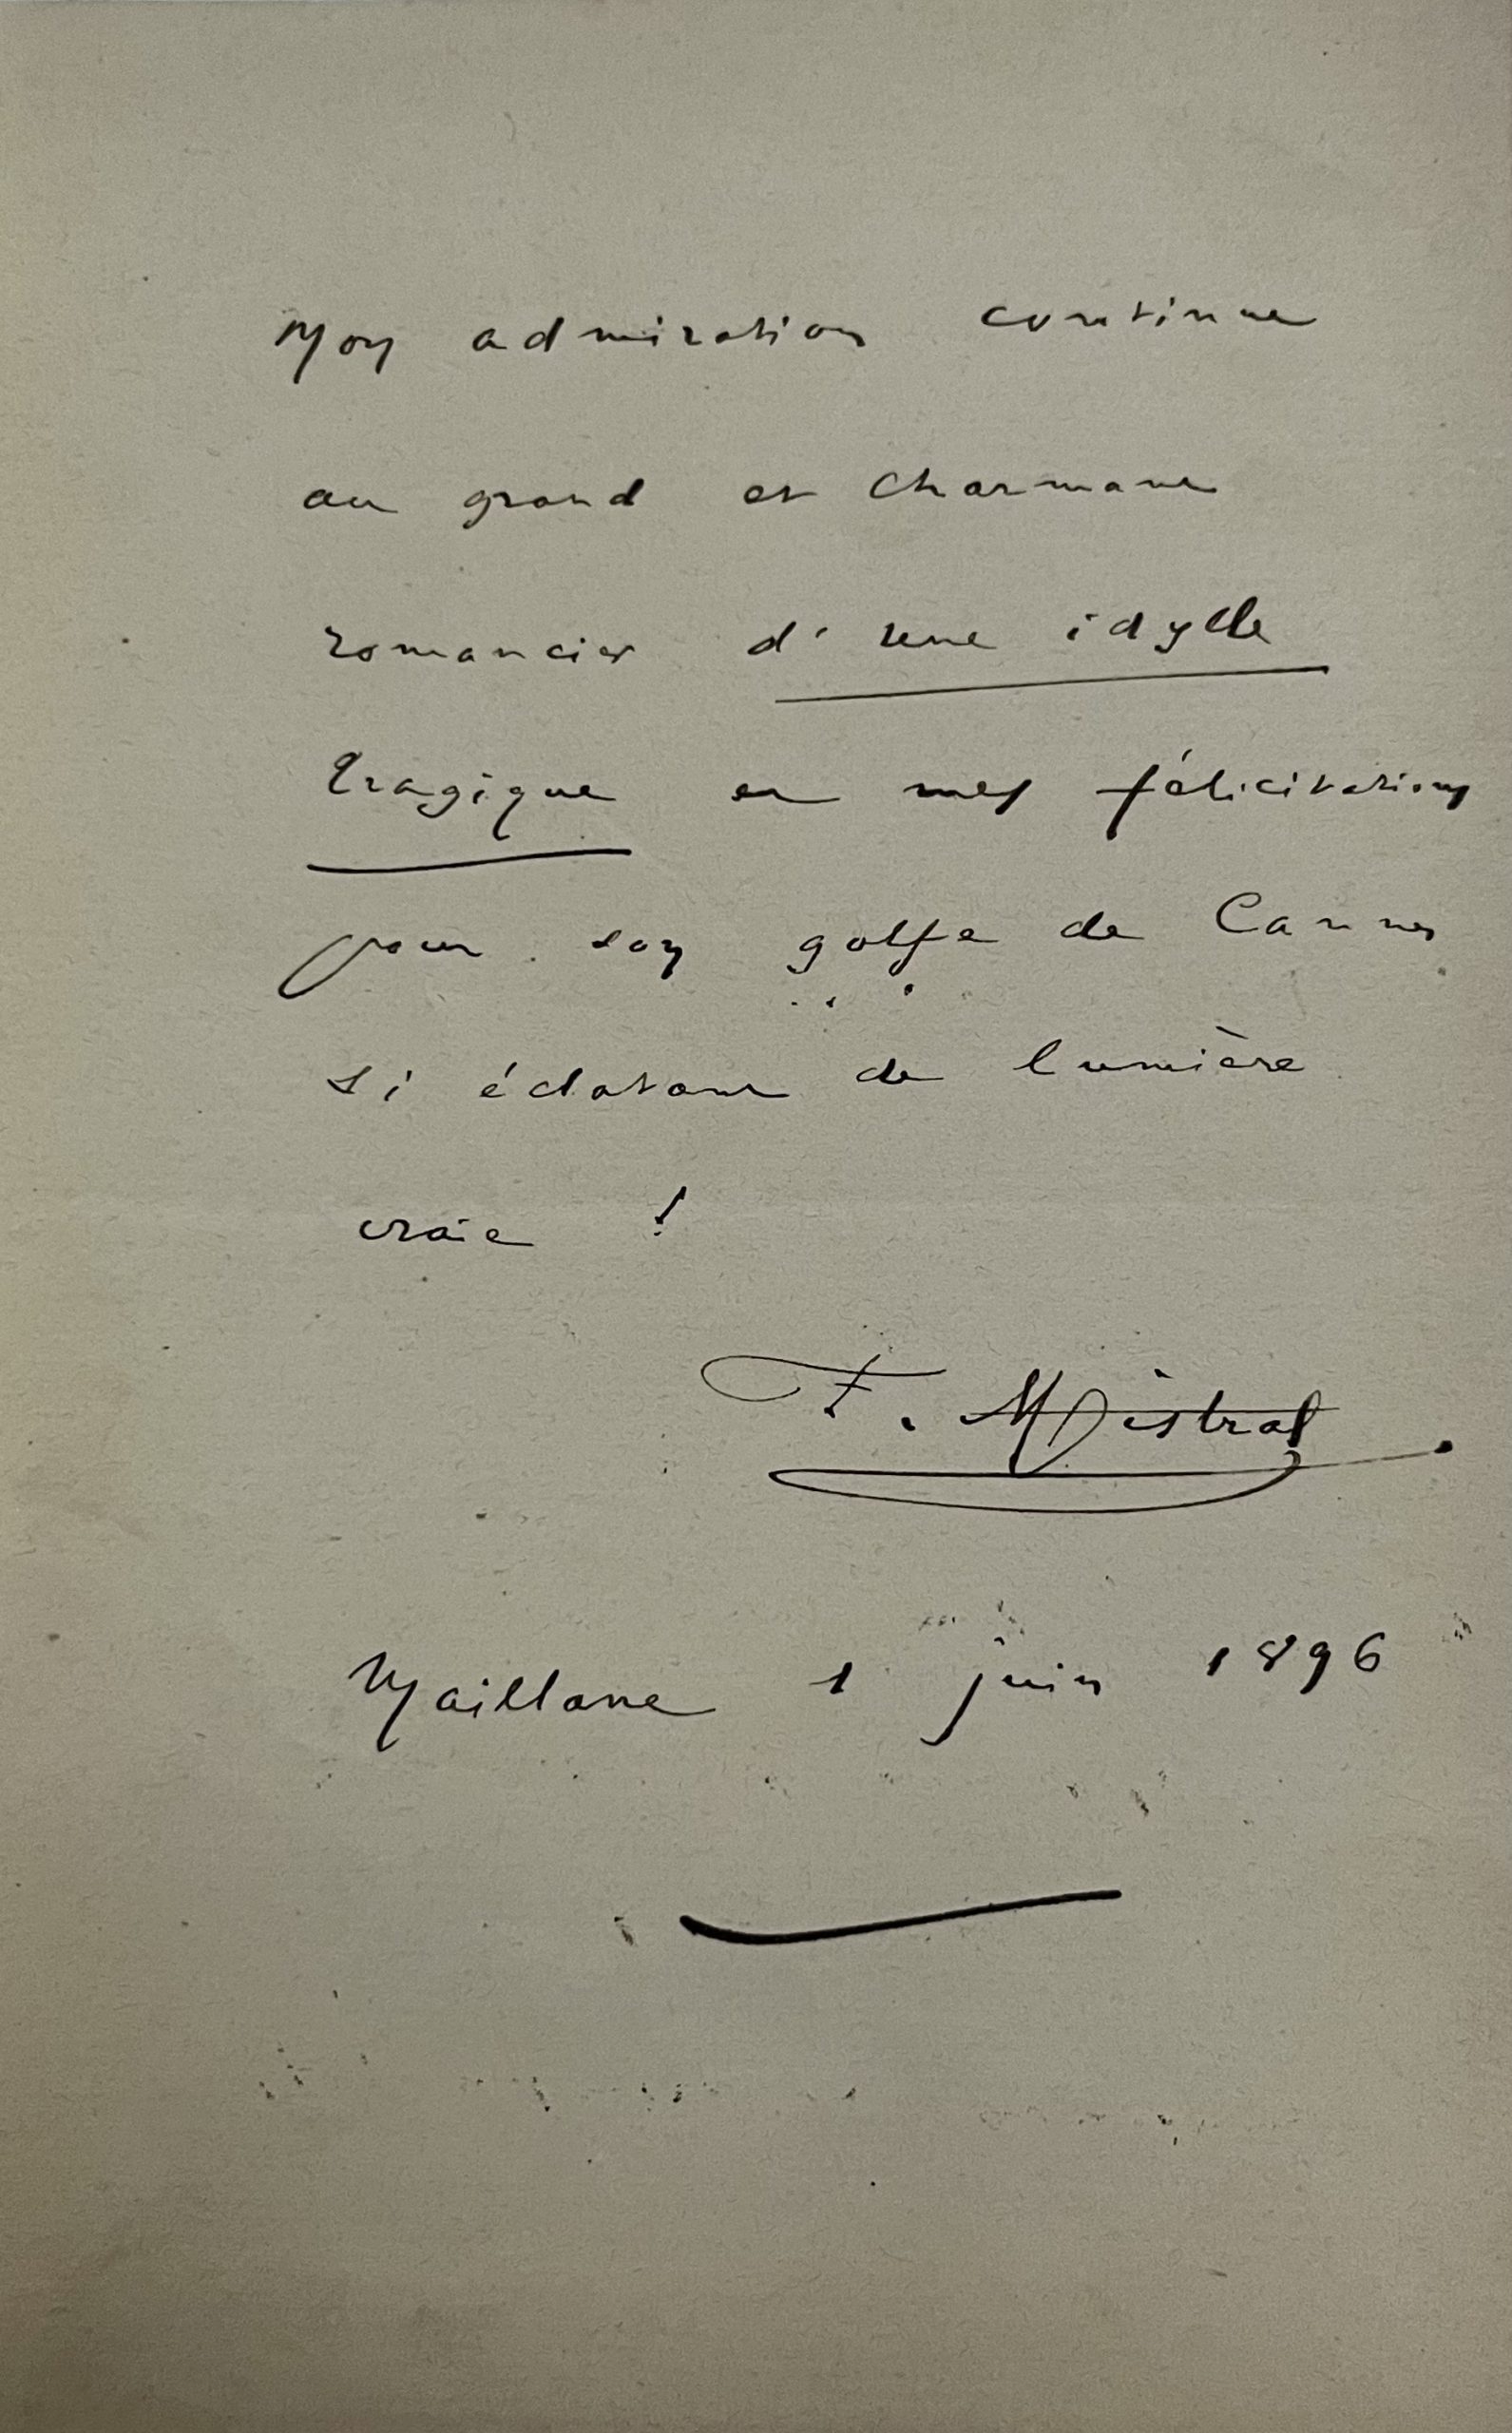 Mon admiration continue
au grand et charmant
romancier d'une idylle
tragique et mes félicitations
pour son golfe de Cannes
si éclatant de lumière
vraie !
F. Mistral
Maillane 1 juin 1896